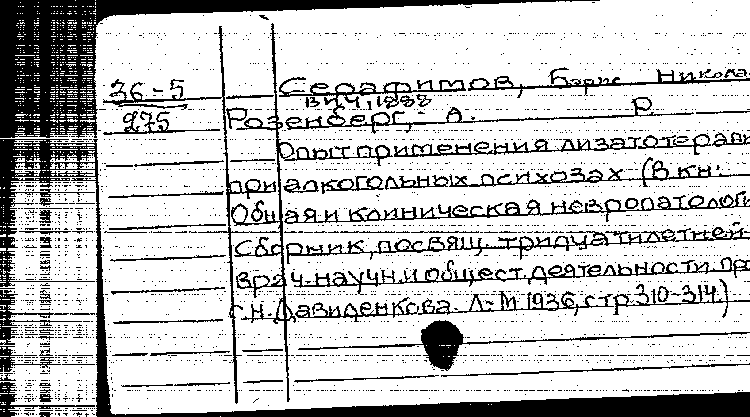 36-5 Серафимов, Борис Никола
врач, 1888
275 Розенберг, А. Р.
Опыт применения лизатотерапи
при алкогольных психозах (В кн:
Общая и клиническая невропатологи
Сборник, посвящ. тридцатилетней
врач. научн. и общест. деятельности. пр
С.Н. Давиденкова. Л-М 1936, стр 310-314)